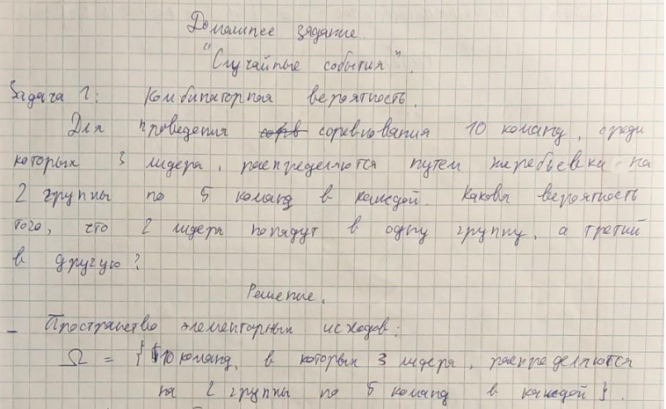 Домашнее задание
"Случайные события".
Задача 1: Комбинаторная вероятность.
Для проведения соревнования 10 команд, среди
которых 3 лидера, распределяются путем жеребьевки на
2 группы по 5 команд в каждой. Какова вероятность
того, что 2 лидера попадут в одну группу, а третий
в другую?
Решение.
- Пространство элементарных исходов:
Ω = { 10 команд, в которых 3 лидера, распределяются
на 2 группы по 5 команд в каждой }.